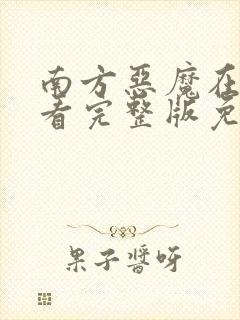 南方惡魔在
看完整版免
果子醬呀